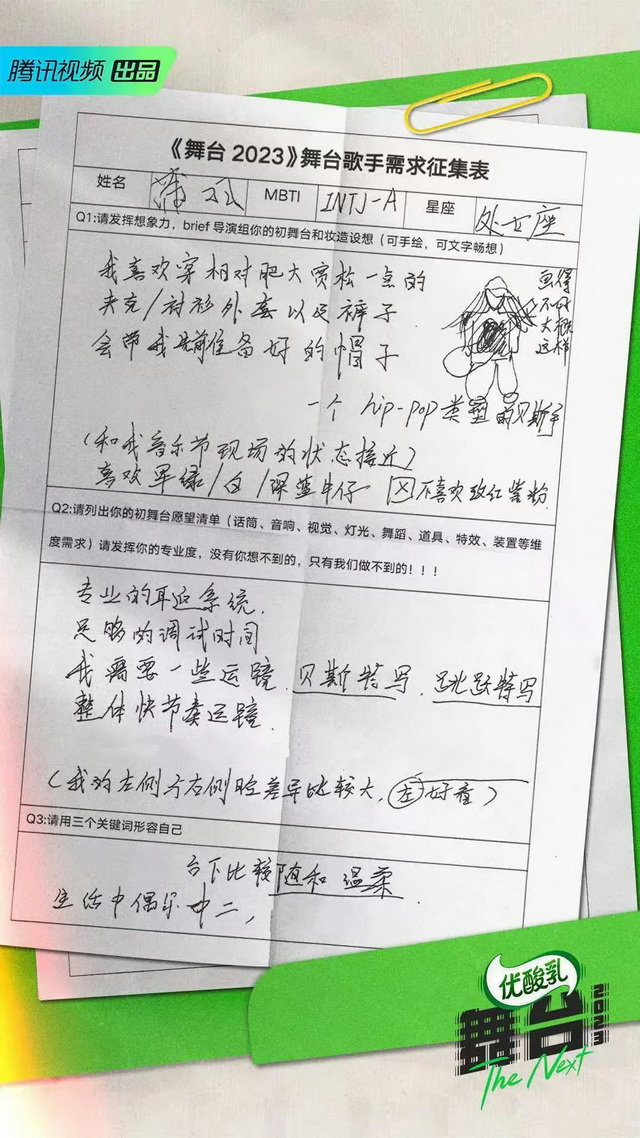 腾讯视频 出品
《舞台 2023》舞台歌手需求征集表
姓名 蒲羽 MBTI INTJ-A 星座 处女座
Q1:请发挥想象力，brief 导演组你的初舞台和妆造设想（可手绘，可文字畅想）
我喜欢穿相对肥大宽松一点的
夹克/衬衫外套以及裤子
会带我提前准备好的帽子
画得
不好
大概
这样
一个 hip-pop 类型的贝斯手
(和我音乐节现场的状态接近)
喜欢军绿/白/深蓝牛仔 不喜欢玫红紫粉
Q2:请列出你的初舞台愿望清单（话筒、音响、视觉、灯光、舞蹈、道具、特效、装置等维
度需求）请发挥你的专业度，没有你想不到的，只有我们做不到的！！！
专业的耳返系统.
足够的调试时间
我需要一些运镜. 贝斯特写. 跳跃特写
整体快节奏运镜.
(我的左侧于右侧脸差异比较大, 左好看)
Q3:请用三个关键词形容自己
台下比较随和 温柔
生活中偶尔中二,
优酸乳
舞台
2023
The Next